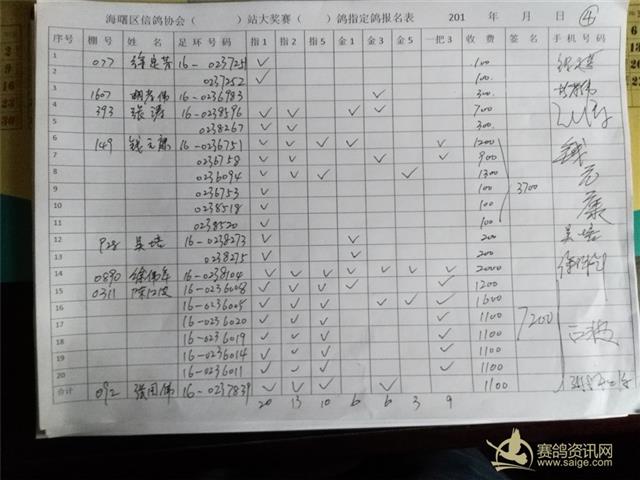 海曙区信鸽协会（　　）站大奖赛（　　）鸽指定鸽报名表　201　年　月　日　④
序号 棚号 姓名 足环号码 指1 指2 指5 金1 金3 金5 一把3 收费 签名 手机号码
1 077 16-0237251 ✓ 100
2 0237252 ✓ 100
3 1607 16-0236983 ✓ 300
4 393 张涛 16-0238596 ✓ ✓ ✓ ✓ 700
5 0238267 ✓ ✓ 300
6 149 16-0236751 ✓ ✓ ✓ ✓ ✓ 1200
7 0236758 ✓ ✓ ✓ ✓ 900
8 0236094 ✓ ✓ ✓ ✓ 1300
9 0236753 ✓ 100 3700
10 0238518 ✓ 100
11 0238520 ✓ 100
12 928 16-0238273 ✓ ✓ 200
13 0238275 ✓ ✓ 200
14 0890 16-0238104 ✓ ✓ ✓ ✓ ✓ ✓ ✓ 2000
15 0311 16-0236008 ✓ ✓ ✓ ✓ ✓ 1200
16 16-0236005 ✓ ✓ ✓ ✓ ✓ ✓ 1600
17 16-0236020 ✓ ✓ ✓ ✓ 1100 7200
18 16-0236019 ✓ ✓ ✓ ✓ 1100
19 16-0236014 ✓ ✓ ✓ ✓ 1100
20 16-0236011 ✓ ✓ ✓ ✓ 1100
合计 092 张国伟 16-0237839 ✓ ✓ ✓ ✓ 1100
20 13 10 6 6 3 9
赛鸽资讯网
www.saige.com